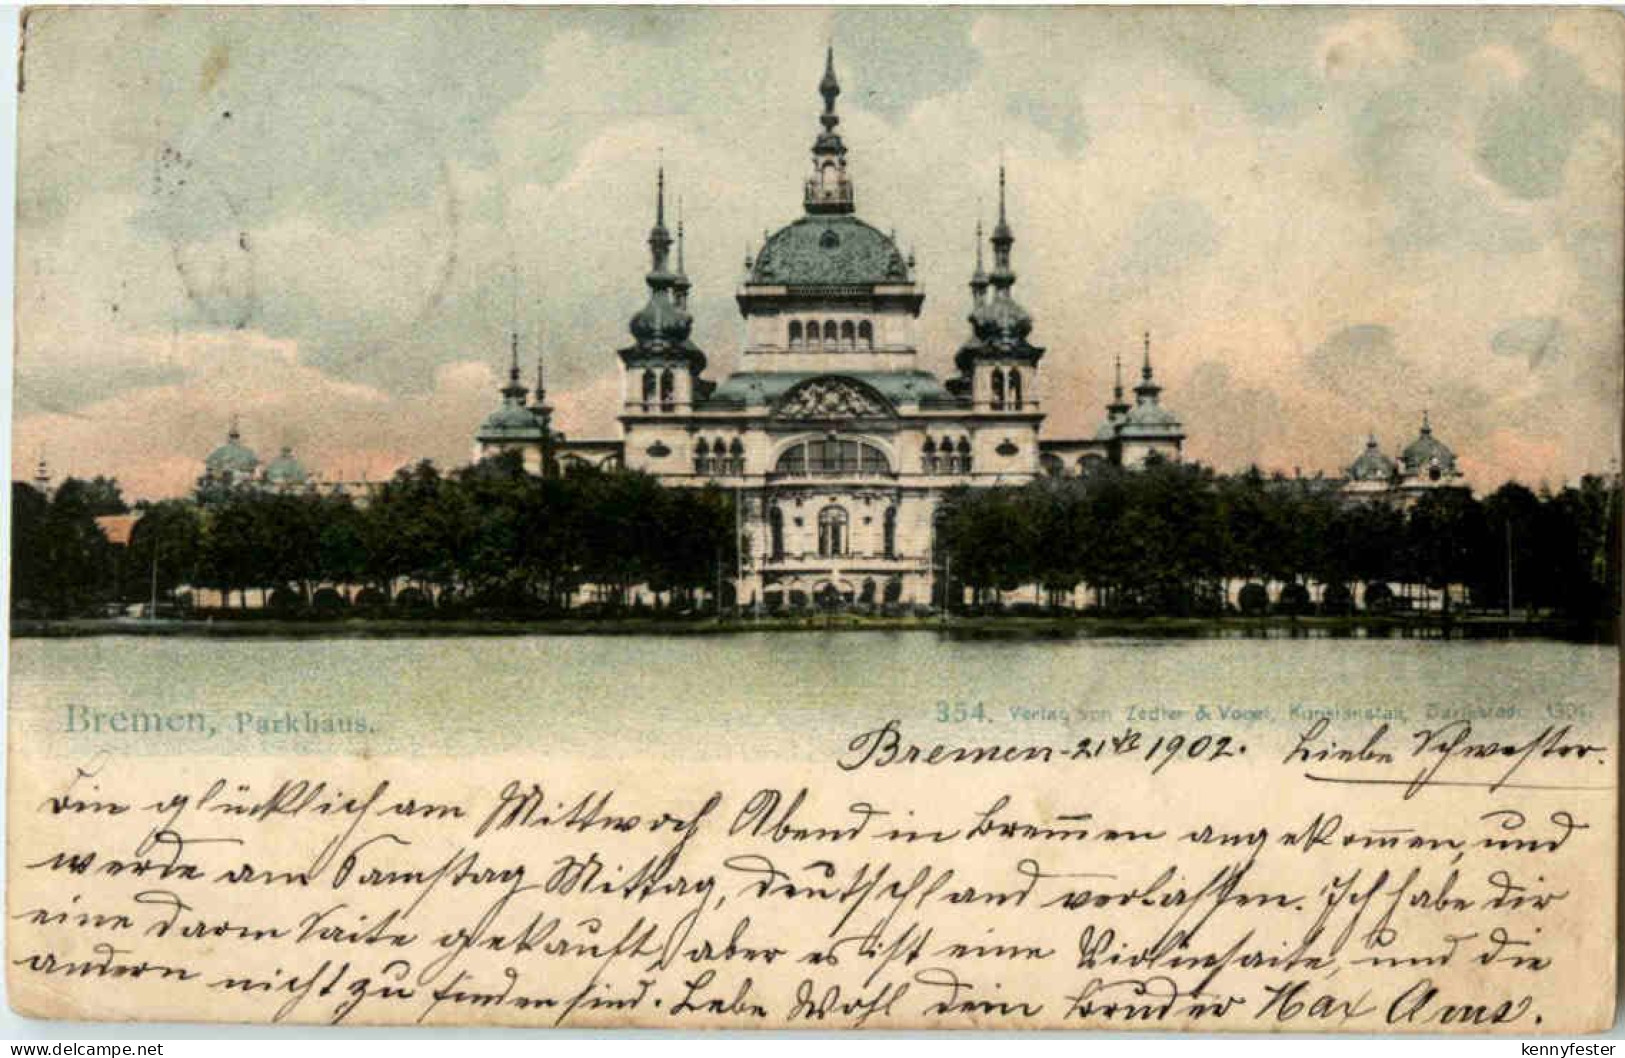 Bremen, Parkhaus.
354. Verlag von Zedler & Vogel, Kunstanstalt, Darmstadt.
Bremen 1902. Liebe Schwester.
Bin glücklich am Mittwoch Abend in Brem̄en angekom̄en, und
werde am Samstag Mittag, Deutschland verlassen. Ich habe dir
eine Darm Saite gekauft, aber es ist eine Violinsaite, und die
andern nicht zu finden sind. Lebe Wohl dein Bruder Max
delcampe.net
kennyfester